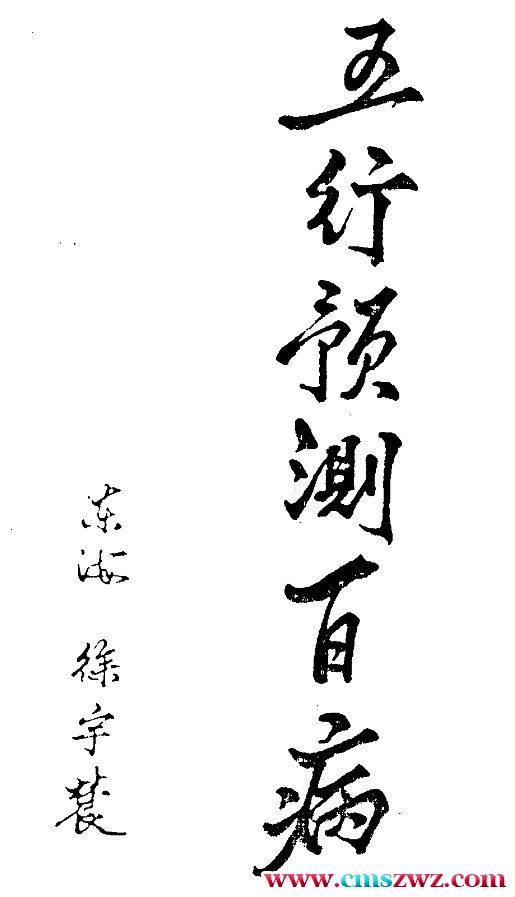 五行预测百病
东海 徐宇农
www.cmszwz.com